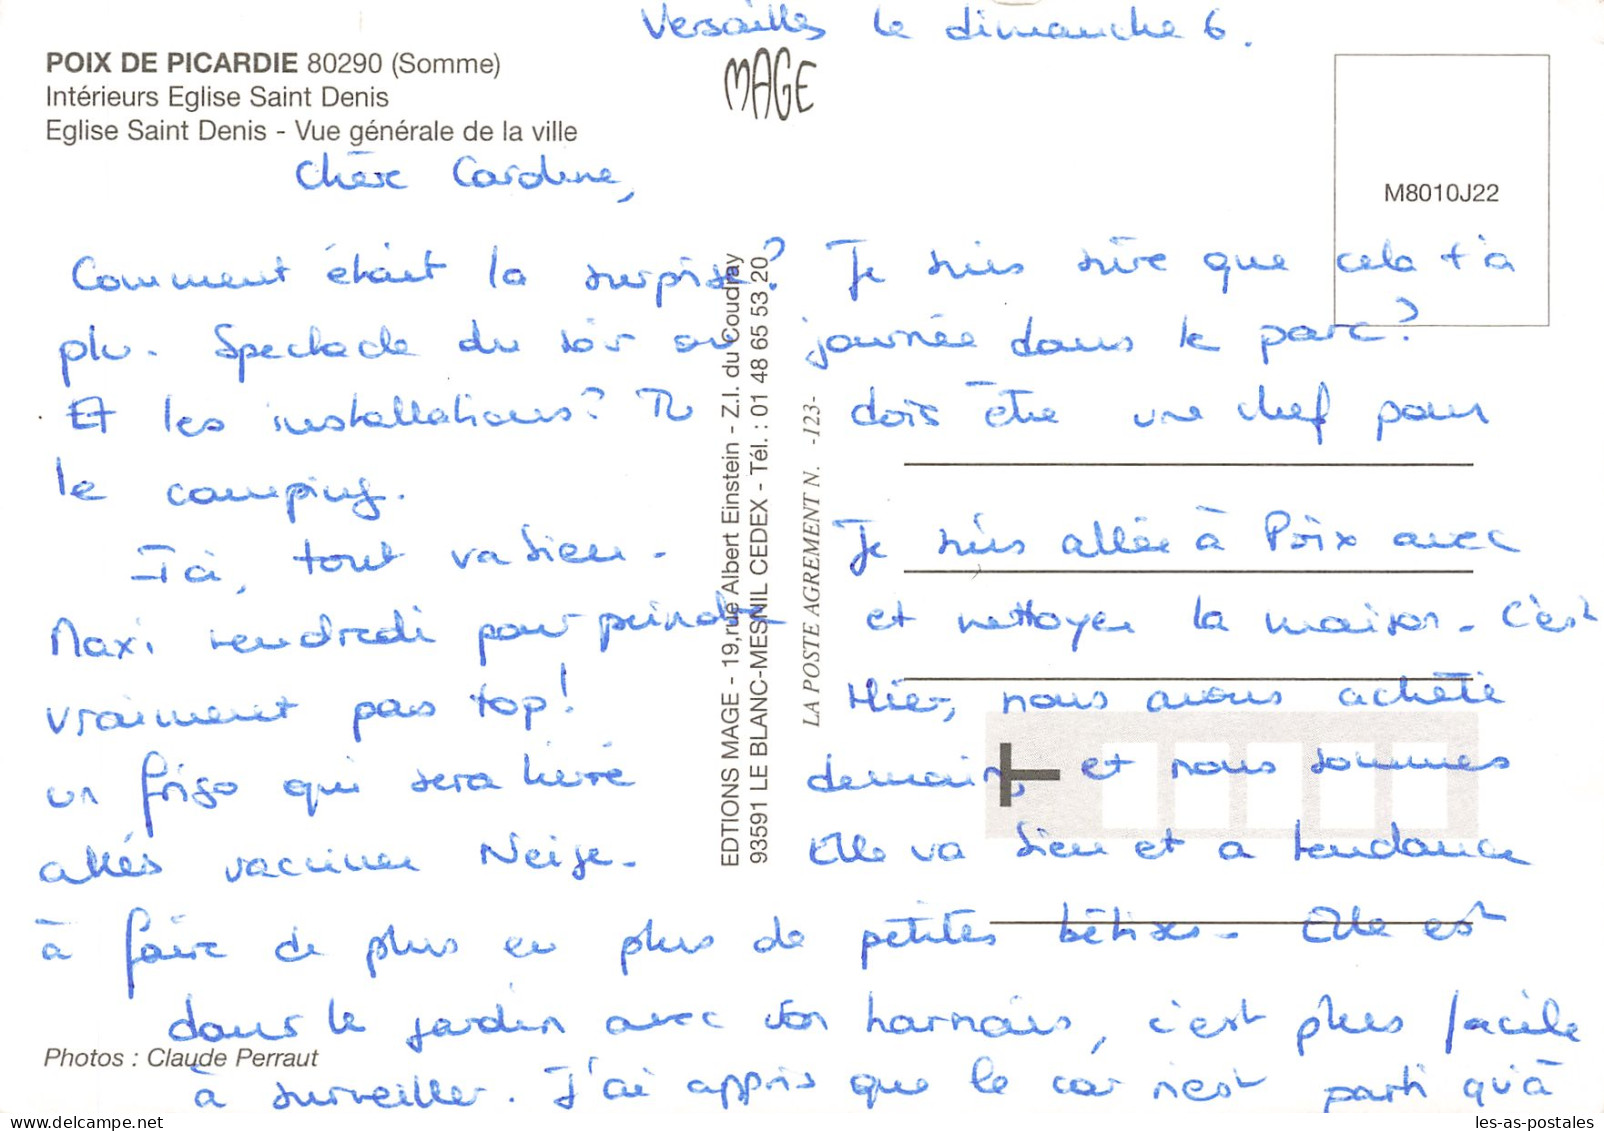 Versailles le dimanche 6.
POIX DE PICARDIE 80290 (Somme)
Intérieurs Eglise Saint Denis
Eglise Saint Denis - Vue générale de la ville
MAGE
M8010J22
Chère Caroline,
Comment était la surprise? Je suis sûre que cela t'a
plu. Spectacle du soir ou journée dans le parc?
Et les installations? Tu dois être une chef pour
le camping.
Ici, tout va bien. Je suis allée à Poix avec
Maxi vendredi pour peindre et nettoyer la maison. C'est
vraiment pas top! Hier, nous avons acheté
un frigo qui sera livré demain, et nous sommes
allés vacciner Neige. Elle va bien et a tendance
à faire de plus en plus de petites bêtises. Elle est
dans le jardin avec son harnais, c'est plus facile
à surveiller. J'ai appris que le car n'est parti qu'à
EDTIONS MAGE - 19,rue Albert Einstein - Z.I. du Coudray
93591 LE BLANC-MESNIL CEDEX - Tél. : 01 48 65 53 20
LA POSTE AGREMENT N. -123-
T
Photos : Claude Perraut
les-as-postales